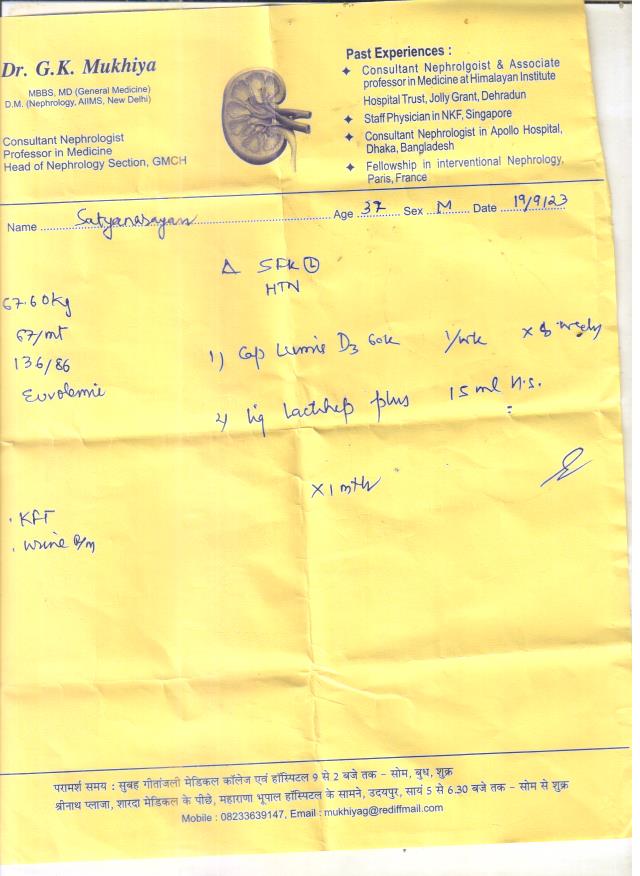 Dr. G.K. Mukhiya
MBBS, MD (General Medicine)
D.M. (Nephrology, AIIMS, New Delhi)
Consultant Nephrologist
Professor in Medicine
Head of Nephrology Section, GMCH
Past Experiences :
✦ Consultant Nephrolgoist & Associate
professor in Medicine at Himalayan Institute
Hospital Trust, Jolly Grant, Dehradun
✦ Staff Physician in NKF, Singapore
✦ Consultant Nephrologist in Apollo Hospital,
Dhaka, Bangladesh
✦ Fellowship in interventional Nephrology,
Paris, France
Name Satyanarayan Age 37 Sex M Date 19/9/23
Δ SFK Ⓛ
HTN
67.60kg
67/mt
136/86
Euvolemic
1) Cap Lumia D3 60k 1/wk x 8 weekly
2) liq Lactihep plus 15 ml H.S.
x 1 mth
. KFT
. Urine R/m
परामर्श समय : सुबह गीतांजली मेडिकल कॉलेज एवं हॉस्पिटल 9 से 2 बजे तक – सोम, बुध, शुक्र
श्रीनाथ प्लाजा, शारदा मेडिकल के पीछे, महाराणा भूपाल हॉस्पिटल के सामने, उदयपुर, सायं 5 से 6.30 बजे तक – सोम से शुक्र
Mobile : 08233639147, Email : mukhiyag@rediffmail.com